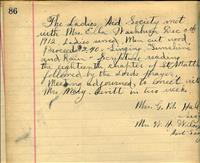 86
The Ladies Aid Society met
with Mrs. Ella Washburn Dec 5th
1912. Ladies sewed. Men cut
Proceeds $2.90. Singing "Sunshine
and Rain" - Scripture reading
the eighteenth chapter of St. Matth
followed by the Lords prayer.
Meeting adjourned, to meet with
Mrs. Mary in two weeks.
Mrs. G. N.
Mrs. W. H.